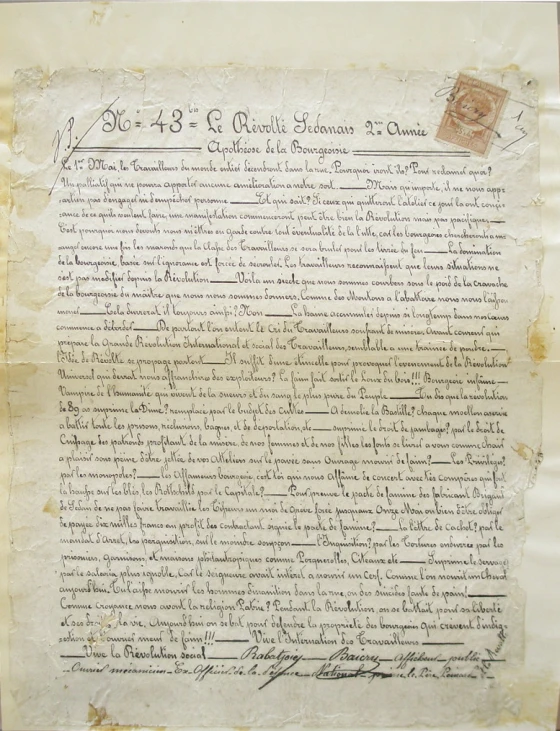 N° 43 bis Le Révolté Sedanais 2me Année
Apothéose de la Bourgeoisie
Le 1er Mai, les Travailleurs du monde entier décendront dans la rue. Pourquoi iront ils? Pour réclamer quoi?
Un palliatif qui ne pourra apporter aucune amélioration a notre sort. Mais qu'importe, il ne nous
d'engager ou d'empécher personne Et qui sait? Si ceux qui quitteront l'atelier ce jour la ont
de ce quils veulent faire, une manifestation commenceront peut être bien la Révolution mais pas pacifique,
C'est pourquoi nous devons nous mettre en Garde contre tout éventualité de la lutte, car les bourgeoisies chercheront a
encore une fois les marrons que la Classe des Travailleurs se sera bruler pour les tirées du feu La domination
de la bourgeoisie, basée sur l'ignorance est forcée de Les travailleurs reconnaissent que leurs situations ne
c'est pas modifier depuis la Révolution Voila un siècle que nous sommes courbées sous le poid de la Cravache
de la bourgeoisie du maître que nous nous sommes donnés. Comme des Moutons a l'abattoire nous nous
mener Cela durera t'il toujours ainsi? Non La haine accumulée depuis si longtemp dans nos cœurs
commence a déborder De partout l'on entent le Cri du Travailleurs soufrant de misère, Avant coureur qui
prépare la Grande Révolution International et social des Travailleurs, semblable a une trainée de poudre.
l'Idée de Révolte se propage partout Il suffit d'une étincelle pour provoquer l'évennement de la Révolution
Universel qui devrat nous affranchire des exploiteurs? La faim fait sortir le loup du bois!!! Bourgeoisie infâme
Vampire de l'humanité qui vivent de la sueur et du sang le plus pure du Peuple Tu dis que la révolution
de 89 as suprimé la Dîme? remplacé par le budget des Cultes A démolie la Bastille? chaque moellon as servie
a battir toute les prisons, reclusions, bagne, et de deportation, etc suprimé le droit de jambages? par le droit de
Cuissage des patrons profitant de la misère de nos femmes et de nos filles les forts se livrer a vous comme chair
a plaisir sous peine d'être jettée de vos Atteliers sur le pavée sans Ouvrage mourir de faim? Les Privilèges?
par les monopoles? les Affameurs bourgeois, c'est toi qui nous Affâme de Concert avec tes Compères qui font
la hausse sur les blés, les Rothschild par le Capitale? Pour preuve le pacte de famine des fabricant Brigand
de Sedan de ne pas faire travaillée les Tisseurs un mois de Janvier jusqu'aux Onze Mai ou bien d'être obligé
de payée dix milles francs au profit des Contractant signée le pacte de famine? La lettre de Cachet? par le
mandat d'Arret, les perquisitions, sur le moindre soupçon l'Inquisition? par les Tortures endurées par les
prisonniers, Garnisons, et maisons philantropiques comme Porquerolles, Citeaux etc Suprimé le servage?
par le salaria plus ignoble, Car le seigneure avait intéret a nourir un Cerf, Comme l'on nourit un Cheval
aujourd'hui, Tu laisse mourir les hommes d'inanition dans la rue, ou des suicides faute de pains!
Comme croyance nous avont la religion Patrie? Pendant la Révolution on se battait pour sa liberté
et ses la vie, Aujourd'hui on se bat pour défendre la proprieté des bourgeois qui crèvent d'indig-
estion et d'ouvrier meur de faim!!! Vive l'Internation des Travailleurs
Vive la Révolution social Afficheur public
Ouvrier mécanicien Ex Officier de la Défense National le Père Peinard